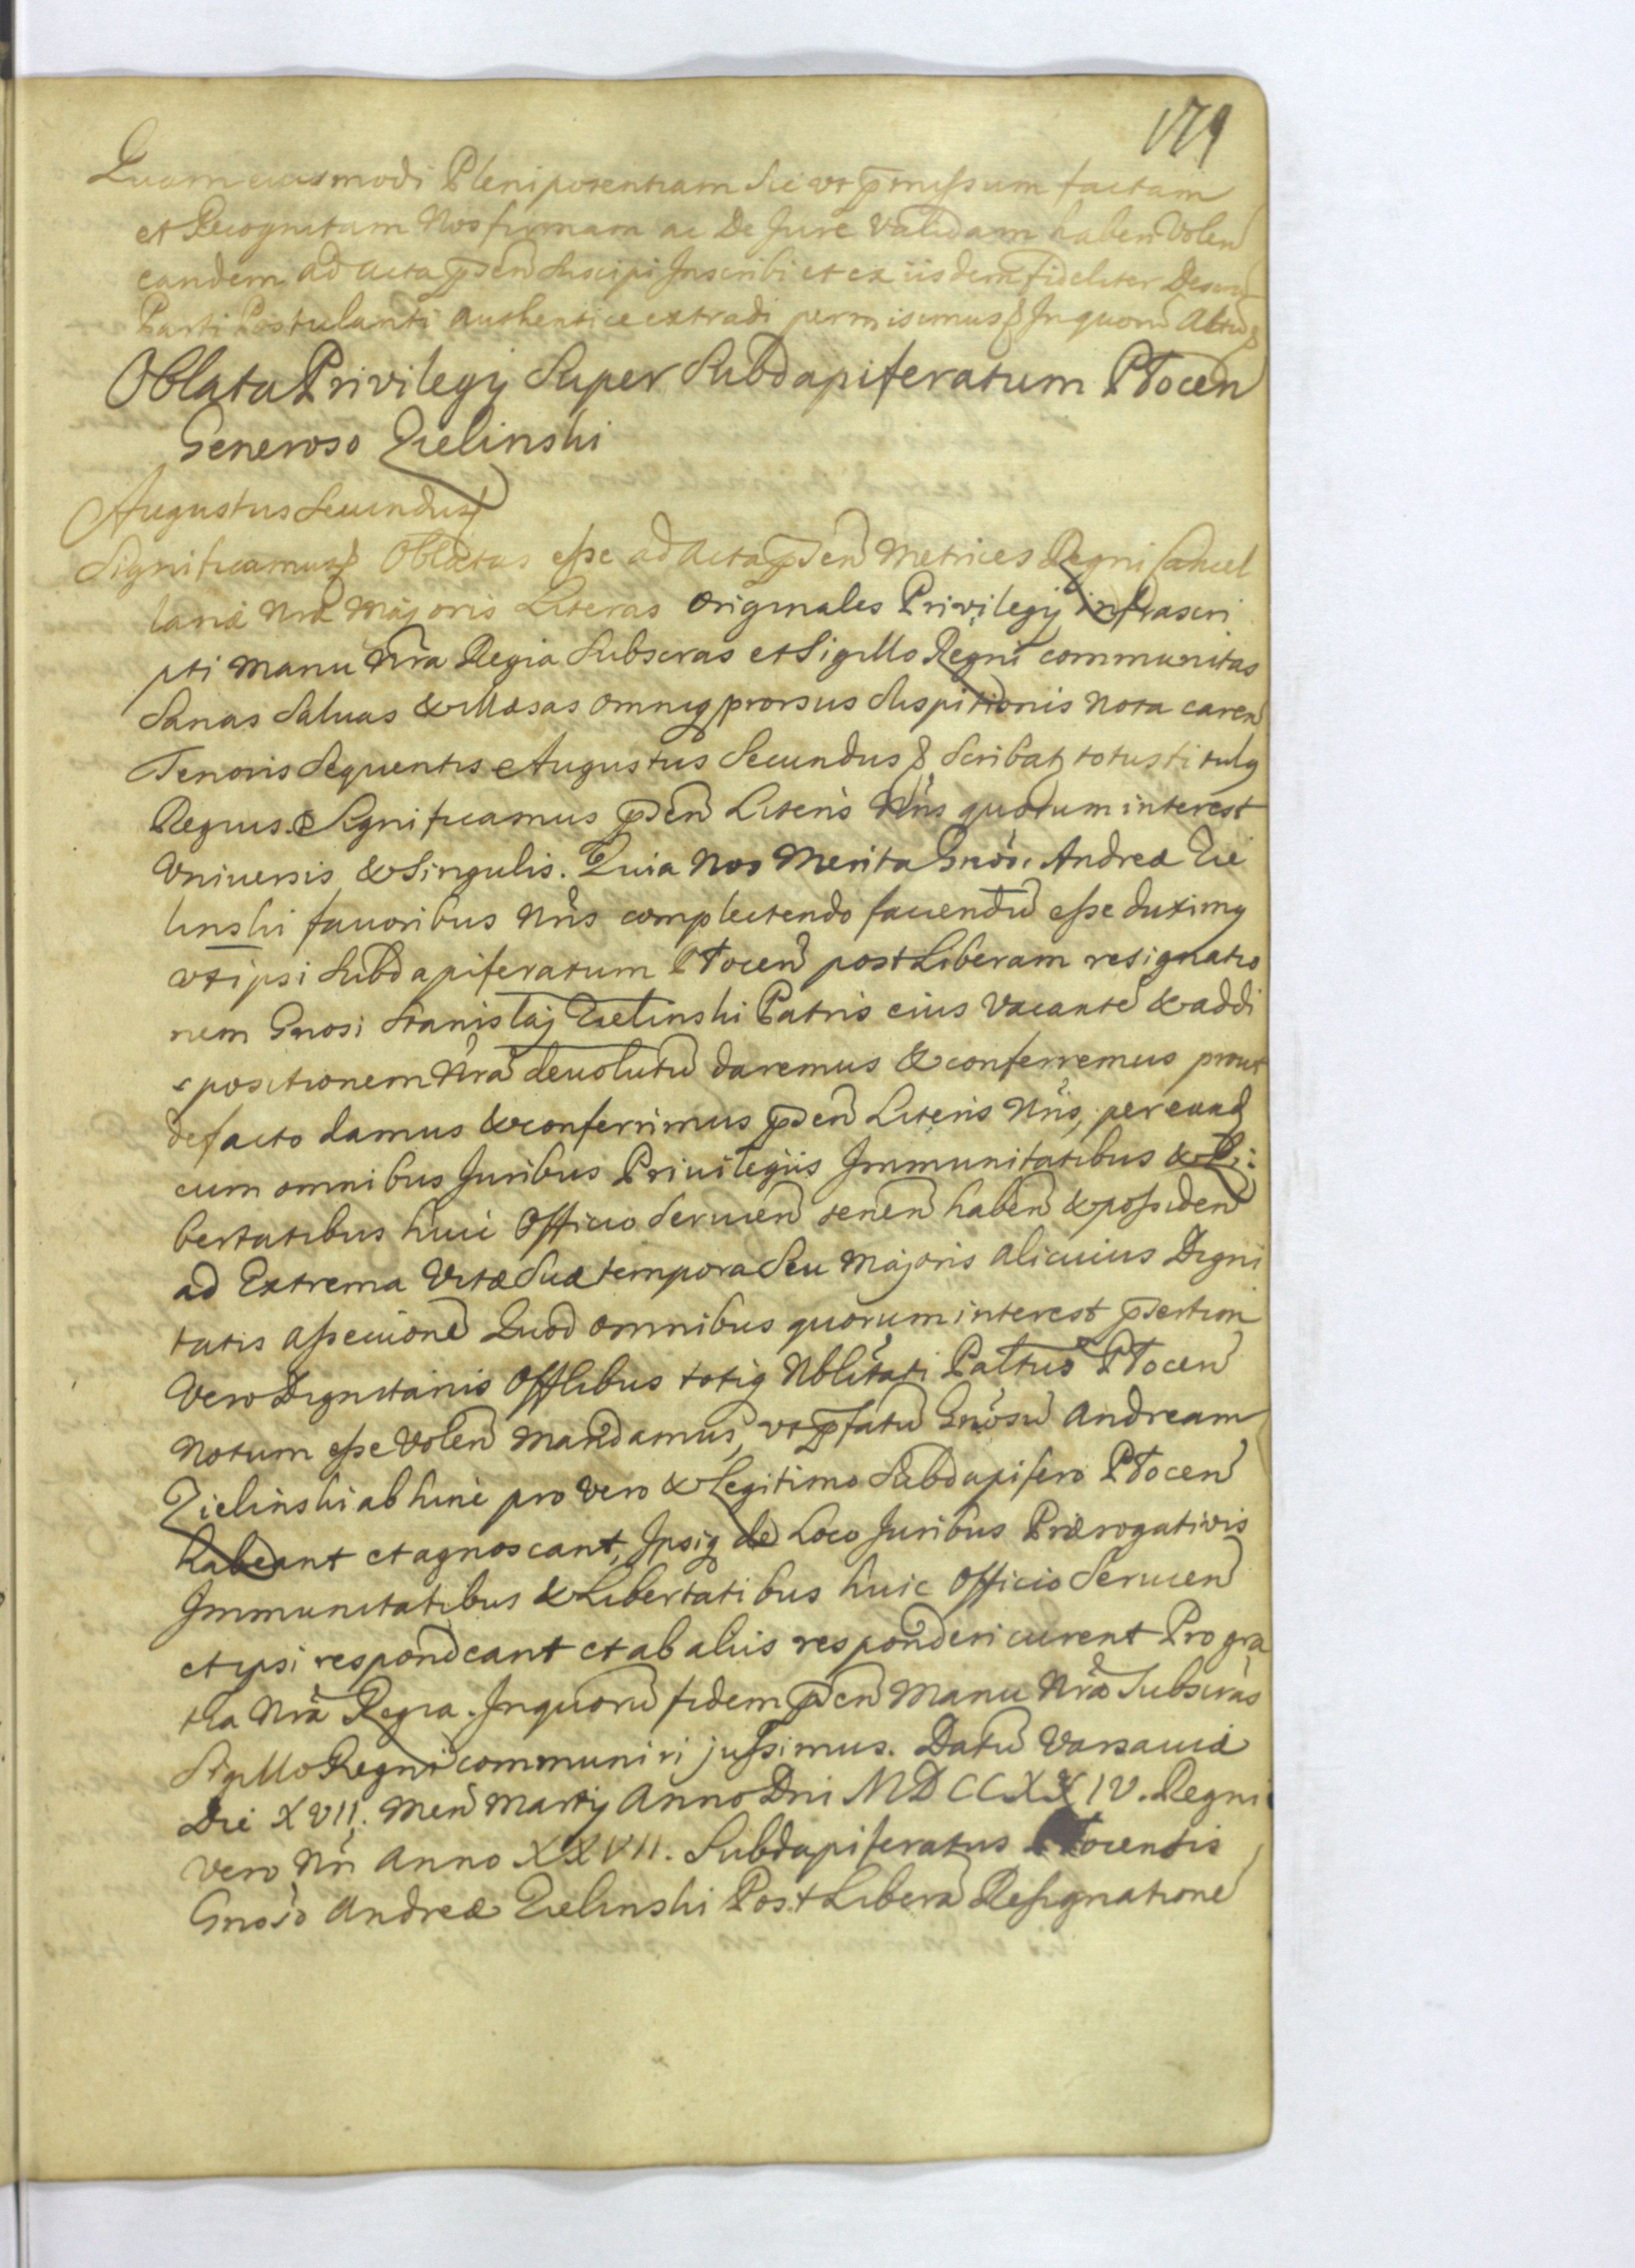 179
Quam eiusmodi Plenipotentiam Sic vt p̄missum factam
et Recognitam Nos firmam ac De Jure Validam haberi Volen̄
eandem ad Acta p̄sen̄ Suscipi Inscribi et ex iisdem Fideliter
Parti Postulanti Authentice extradi permisimus In quorū
Oblata Privilegij Super Subdapiferatum Płocen̄
Generoso Zielinski
Augustus Secundus
Significamus Oblatas esse ad Acta p̄sen̄ Metrices Regni Cancel
lariæ Nræ Majoris Literas Originales Privilegij infrascri
pti Manu Nr̄a Regia Subscras et Sigillo Regni communitas
Sanas Saluas & Illæsas omniq prorsus Suspitionis Nota caren̄
Tenoris Sequentis Augustus Secundus & Scribat totus titulg
Regius. Significamus p̄sen̄ Literis Nr̄is quorum interest
Vniuersis & Singulis. Quia Nos Merita Gnosi Andreæ Zie
linski fauoribus Nr̄is complectendo faciendū esse duximg
vt ipsi Subdapiferatum Płocen̄ post Liberam resignatio
nem Gnosi Stanisłaj Zielinski Patris eius Vacantē & ad di
spositionem Nr̄ā deuolutū daremus & conferremus prout
de facto damus & conferrimus p̄sen̄ Literis Nr̄is, per eund
cum omnibus Juribus Priuilegiis Immunitatibus & Li:
bertatibus huic Officio Seruien̄ tenen̄ haben̄ & possiden̄
ad Extrema Vitæ Suæ tempora Seu Majoris alicuius Digni
tatis assecutionē Quod omnibus quorum interest p̄sertim
Vero Dignitariis Offlibus totiq Nblitati Pałtus Płocen̄
Notum esse Volen̄ mandamus, vt p̄fatū Gnosū Andream
Zielinski ab hinc pro vero & Legitimo Subdapifero Płocen̄
habeant et agnoscant, Ipsiq de Loco Juribus Prærogativis
Immunitatibus & Libertatibus huic Officio Seruien̄
et ipsi respondeant et ab aliis responderi curent Pro gra
tia Nr̄a Regia. In quorū fidem p̄sen̄ Manu Nr̄a Subscras
Sigillo Regni communiri jussimus. Datū Varsauiæ
Die XVII. Men̄ Martij Anno Dni MDCCXXIV. Regni
vero Nri Anno XXVII. Subdapiferatus Płocensis
Gnoso Andreæ Zielinski Post Liberā Resignationē